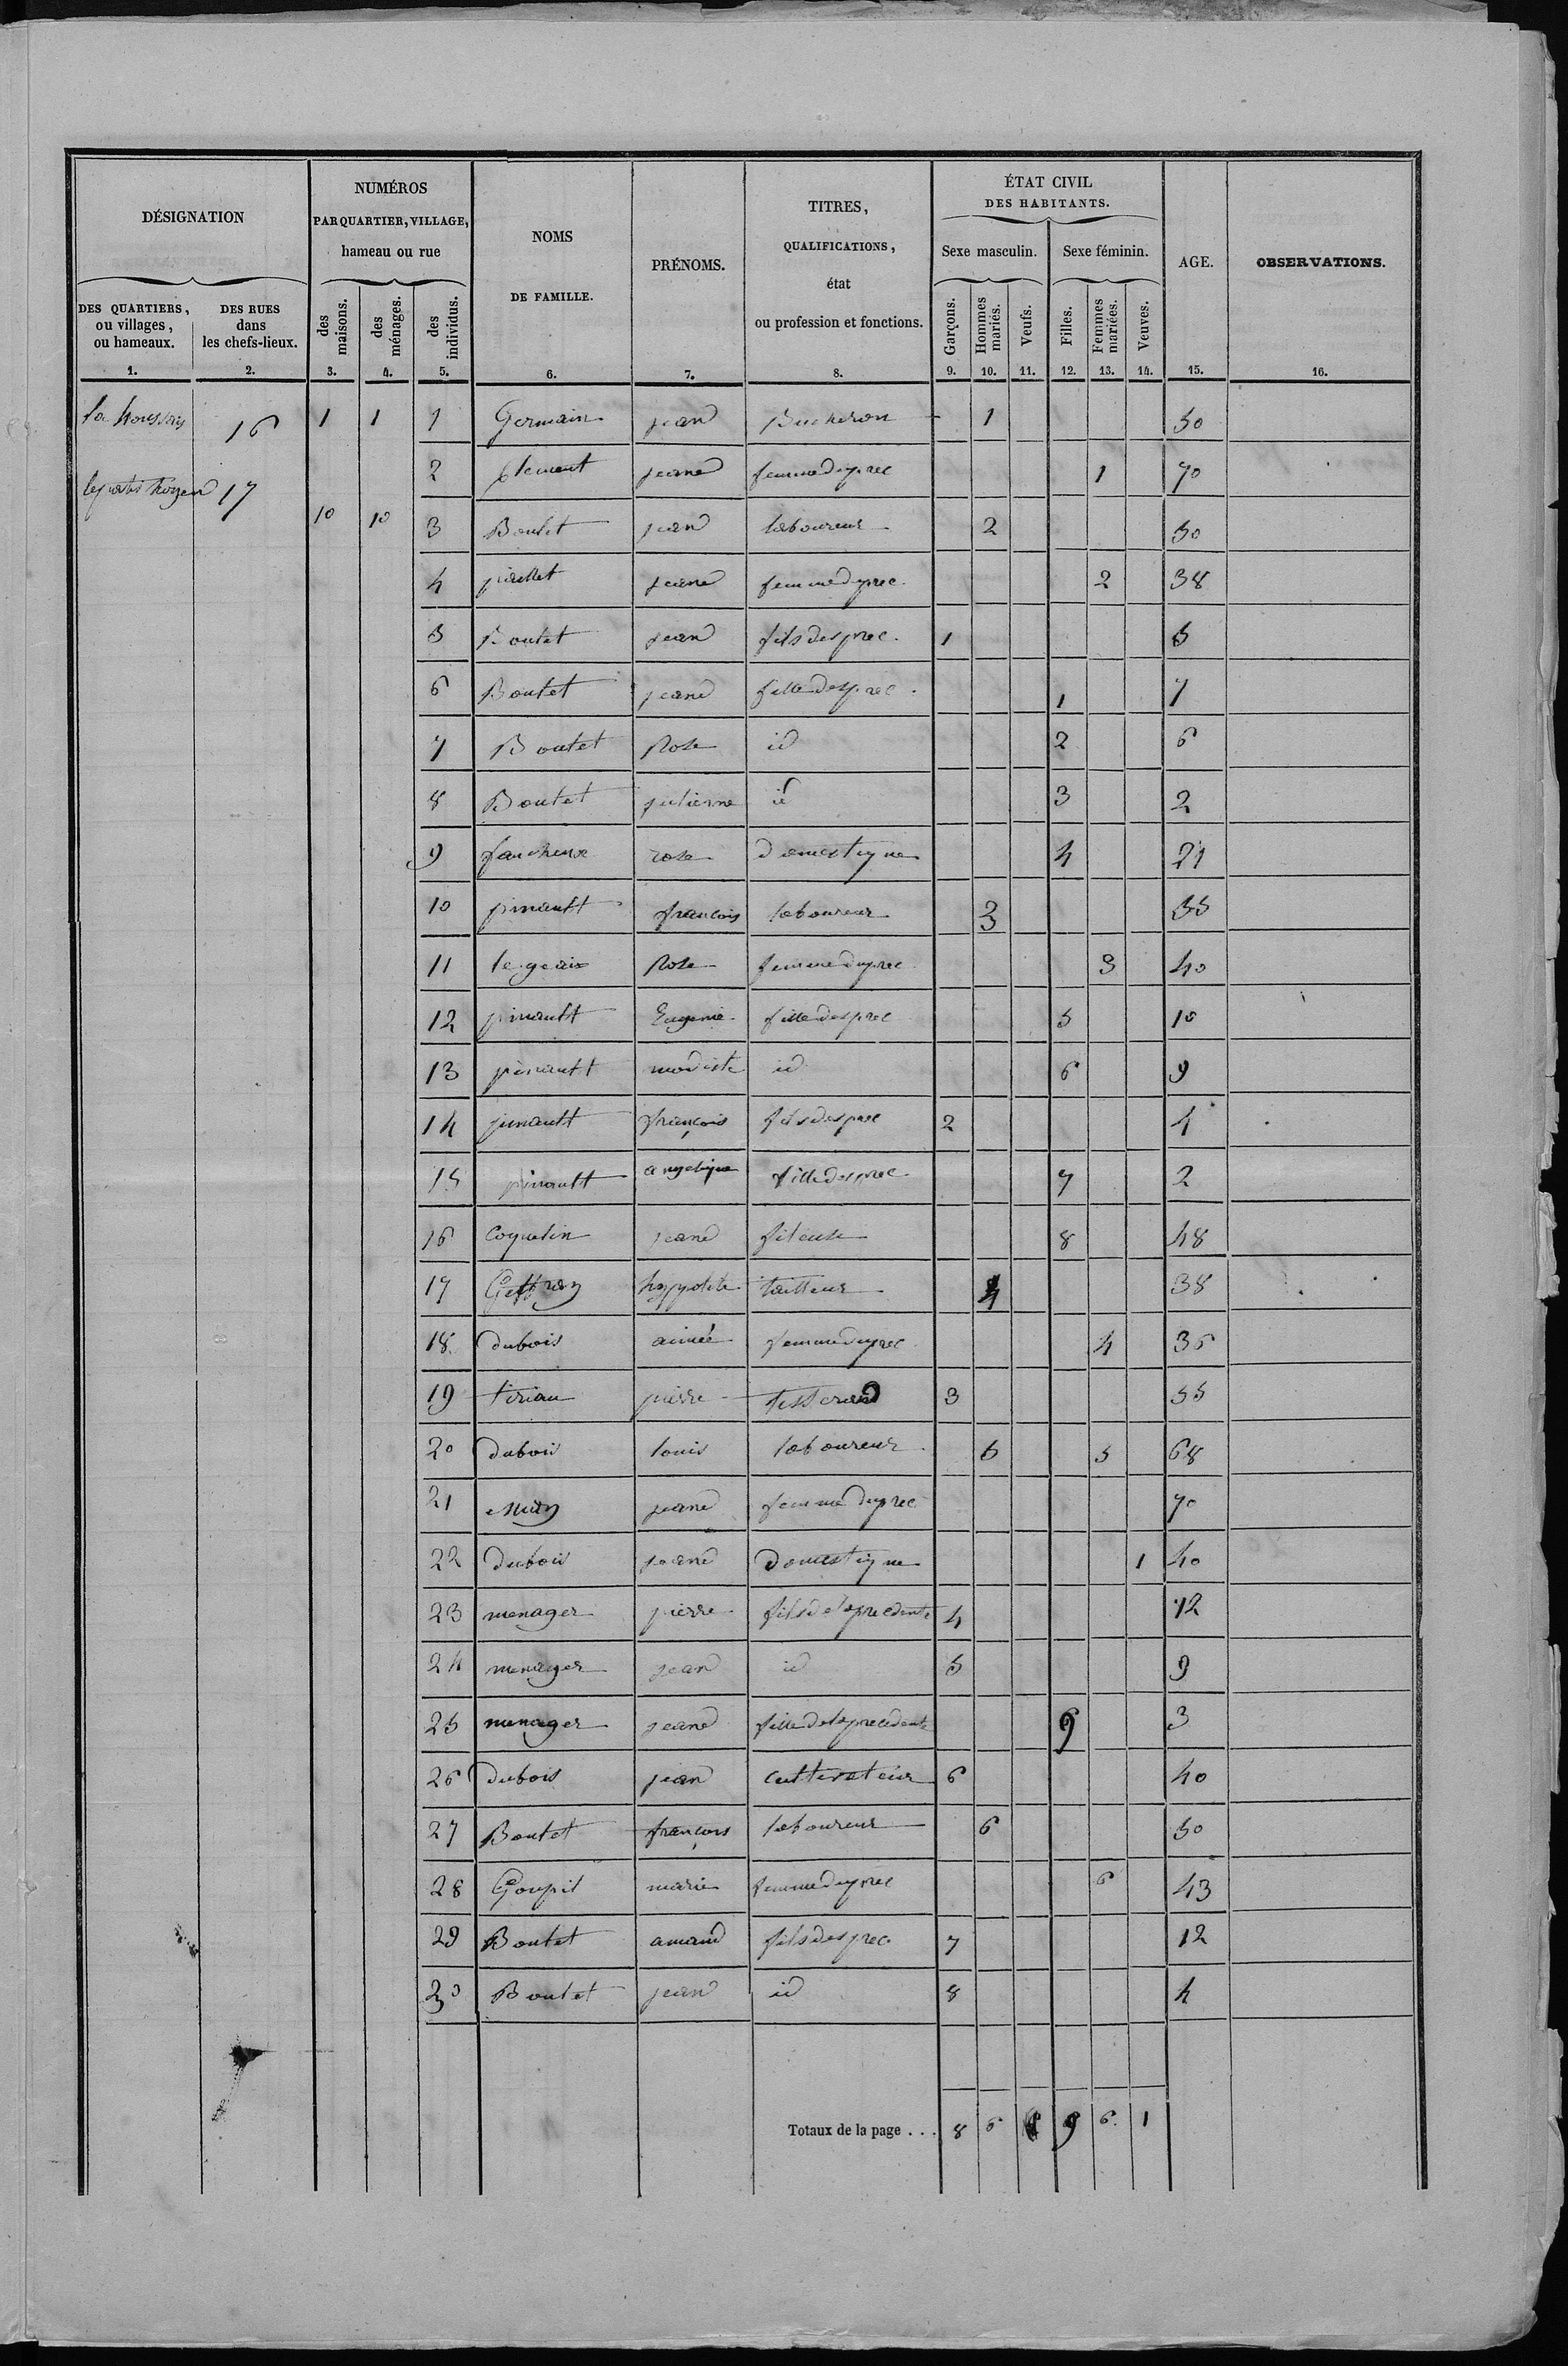 DÉSIGNATION
NUMÉROS
PAR QUARTIER, VILLAGE,
hameau ou rue
NOMS
DE FAMILLE.
PRÉNOMS.
TITRES,
QUALIFICATIONS,
état
ou profession et fonctions.
ÉTAT CIVIL
DES HABITANTS.
Sexe masculin. Sexe féminin.
AGE.
OBSERVATIONS.
DES QUARTIERS,
ou villages,
ou hameaux.
DES RUES
dans
les chefs-lieux.
des maisons.
des ménages.
des individus.
Garçons.
Hommes mariés.
Veufs.
Filles.
Femmes mariées.
Veuves.
1. 2. 3. 4. 5. 6. 7. 8. 9. 10. 11. 12. 13. 14. 15. 16.
la houssay 16 1 1 1 Germain jean Bucheron 1 50
17 2 jeane femme du prec 1 70
10 10 3 Boutet jean laboureur 2 50
4 jeane femme du prec. 2 38
5 Boutet jean fils des prec. 1 5
6 Boutet jeane fille des prec. 1 7
7 Boutet Rose id 2 6
8 Boutet julienne id 3 2
9 faucheux rose domestique 4 21
10 pinault françois laboureur 3 35
11 le geaix Rose femme du prec 3 40
12 pinault Eugenie fille des prec 5 10
13 pinault modeste id 6 9
14 pinault françois fils des prec 2 4
15 pinault angelique fille des prec 7 2
16 Coquelin jeane fileuse 8 48
17 Geffray hyppolite tailleur 4 38
18 dubois aimée femme du prec 4 36
19 tiriau pierre tisserand 3 55
20 dubois louis laboureur 5 5 68
21 jeane femme du prec 70
22 Dubois jeane Domestique 1 40
23 menager pierre fils de la precedente 4 12
24 menager jean id 5 9
25 menager jeane fille de la precedente 9 3
26 Dubois jean cultivateur 6 40
27 Boutet françois laboureur 6 50
28 Goupil marie femme du prec 6 43
29 Boutet amand fils des prec. 7 12
30 Boutet jean id 8 4
Totaux de la page . . . 8 6 9 6 1